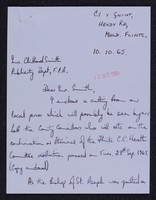 HENDY Rd,
MOLD. FLINTS.
10.10.65
Miss Clifford Smith
Publicity Dept, F.P.A.
Dear Mrs. Smith,
I enclose a cutting from our
local paper which will possibly be seen
but the County Councillors who will vote on the
confirmation or otherwise of the Flints C.C. Health
Committee resolution passed on Tues. 28th Sep. 1965
(copy enclosed)
As the Bishop of St. Asaph was quoted in